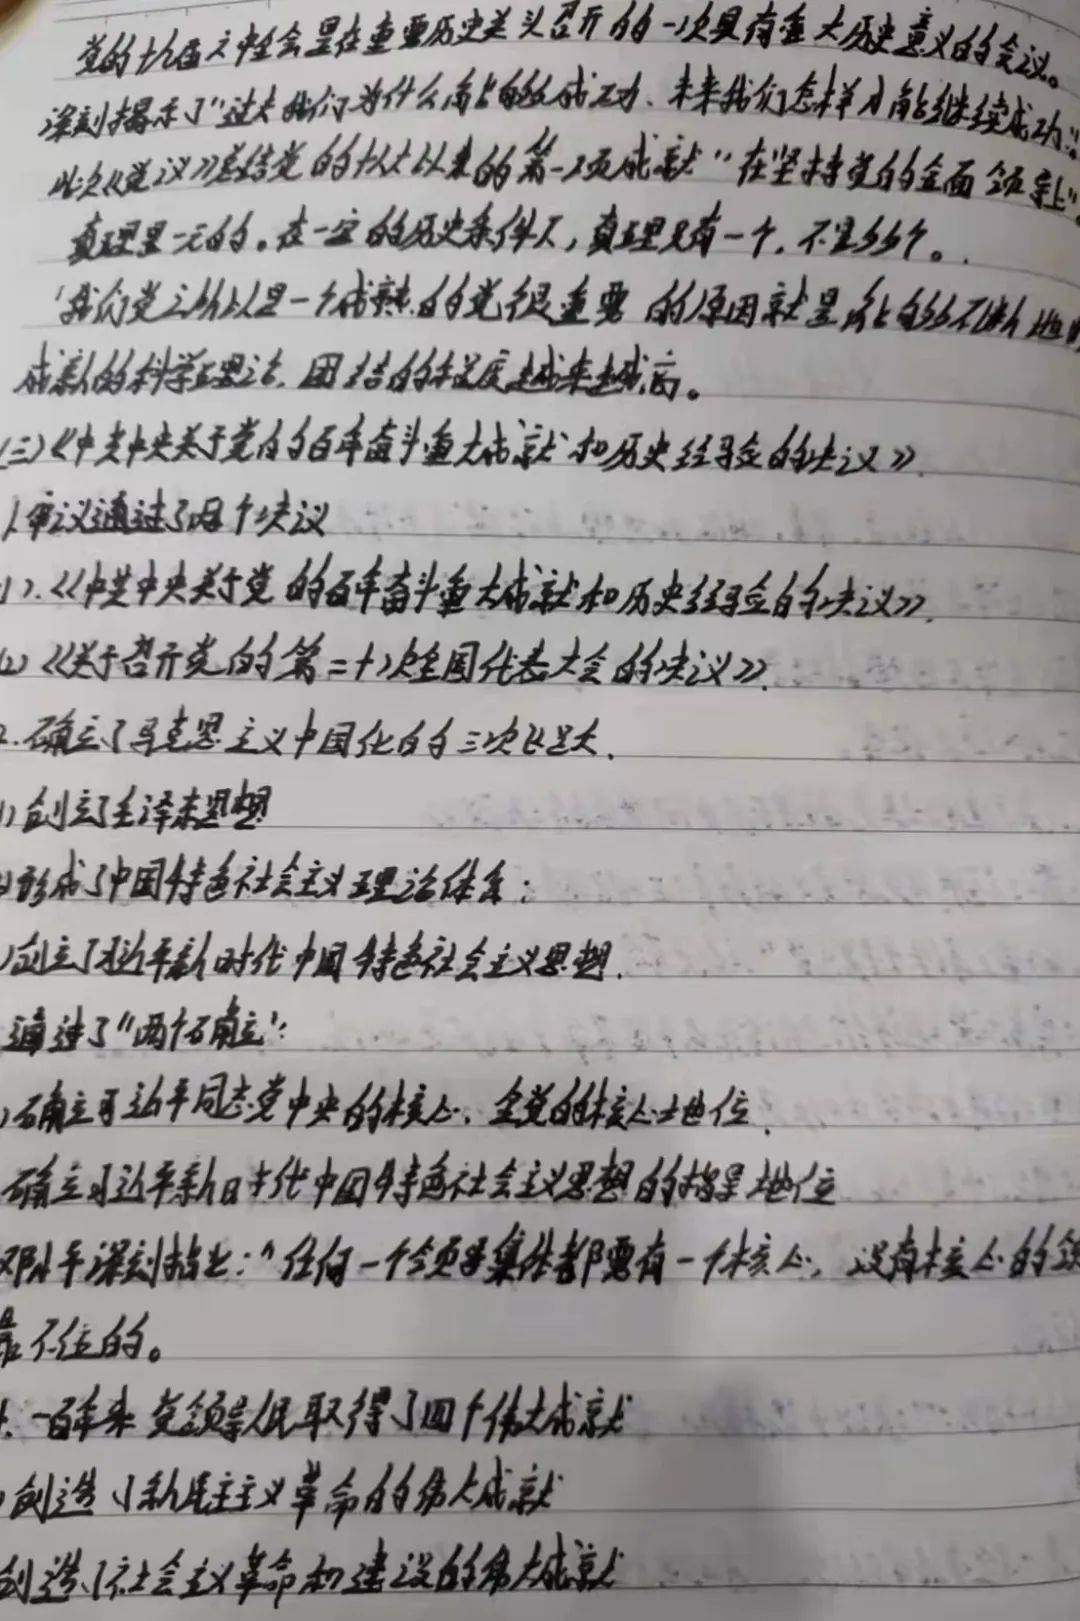 党的十九届六中全会是在重要历史关头召开的一次具有重大历史意义的会议。
深刻揭示了"过去我们为什么能够成功、未来我们怎样才能继续成功"。
此次《决议》总结党的十八大以来的第一项成就"在坚持党的全面领导上"。
真理是一元的。在一定的历史条件下，真理只有一个，不是多个。
"我们党之所以是一个成熟的党很重要的原因就是能够不断地
成新的科学理论，团结的程度越来越高。
(三)《中共中央关于党的百年奋斗重大成就和历史经验的决议》
1.审议通过了两个决议
(1).《中共中央关于党的百年奋斗重大成就和历史经验的决议》
(2)《关于召开党的第二十次全国代表大会的决议》
2.确立了马克思主义中国化的三次飞跃.
(1)创立了毛泽东思想
形成了中国特色社会主义理论体系;
)创立了习近平新时代中国特色社会主义思想.
通过了"两个确立":
)确立习近平同志党中央的核心、全党的核心地位.
确立习近平新时代中国特色社会主义思想的指导地位
邓小平深刻指出:"任何一个领导集体都要有一个核心，没有核心的领
靠不住的。
4.一百年来党领导人民取得了四个伟大成就
)创造了新民主主义革命的伟大成就
创造了社会主义革命和建设的伟大成就